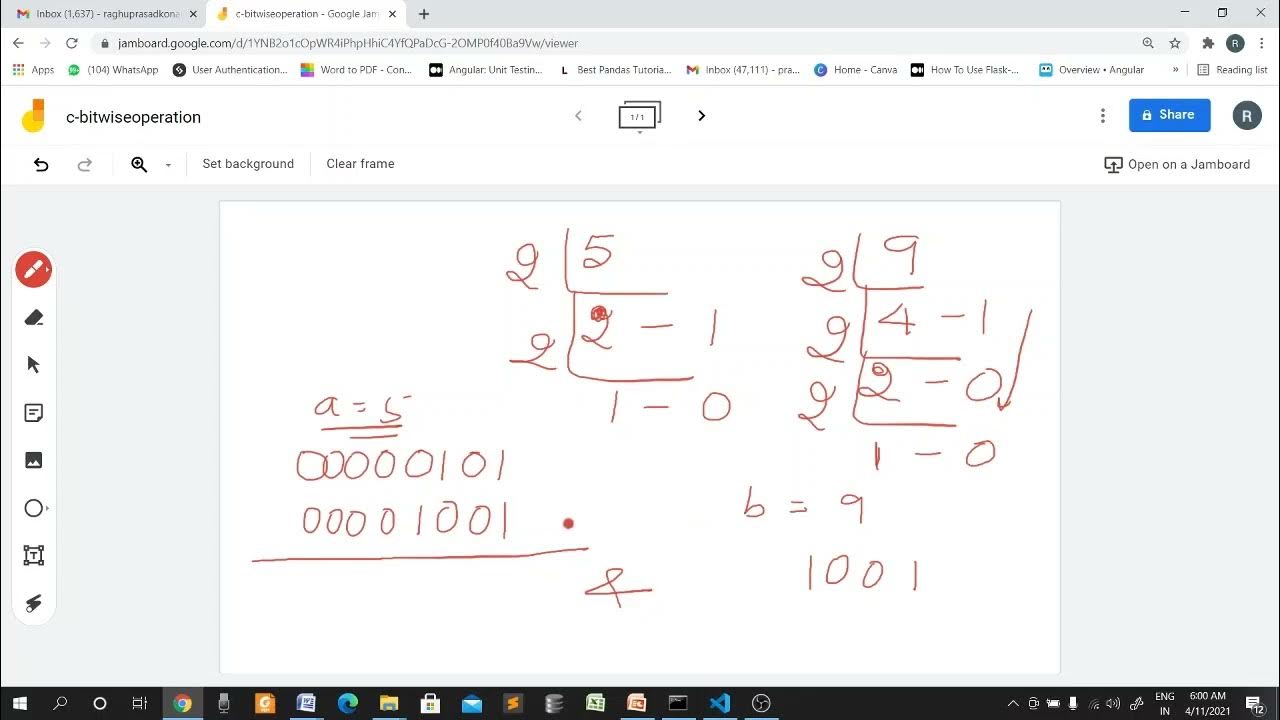 Inbox (1,637) - raghuprasadkona
c-bitwiseoperation - Google Jam
jamboard.google.com/d/1YNB2o1cOpWR4iPhpHhiC4YfQPaDcG-2OMP0f40Ba9Vw/viewer
R
Apps (104) WhatsApp User Authentication... Word to PDF - Con... Angular: Unit Testin... L Best Pandas Tutoria... Inbox (47,111) - pra... Home - Canva How To Use Flex-... Overview • Angular » Reading list
c-bitwiseoperation
1/1
Share
R
Set background Clear frame
Open on a Jamboard
2 5
2 2 - 1
1 - 0
2 9
2 4 - 1
2 2 - 0
1 - 0
a = 5
00000101
00001001
&
b = 9
1001
ENG 6:00 AM
IN 4/11/2021
12